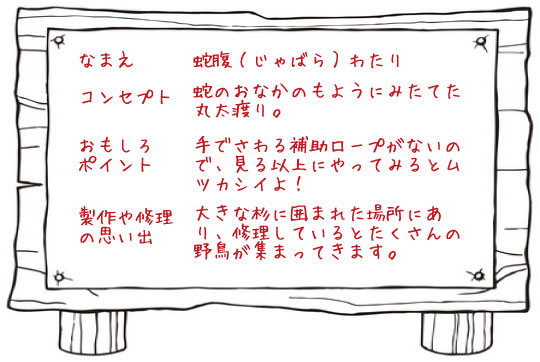 なまえ 蛇腹（じゃばら）わたり
コンセプト 蛇のおなかのもようにみたてた
丸太渡り。
おもしろ 手でさわる補助ロープがないの
ポイント で、見る以上にやってみるとム
ツカシイよ！
製作や修理 大きな杉に囲まれた場所にあ
の思い出 り、修理しているとたくさんの
野鳥が集まってきます。